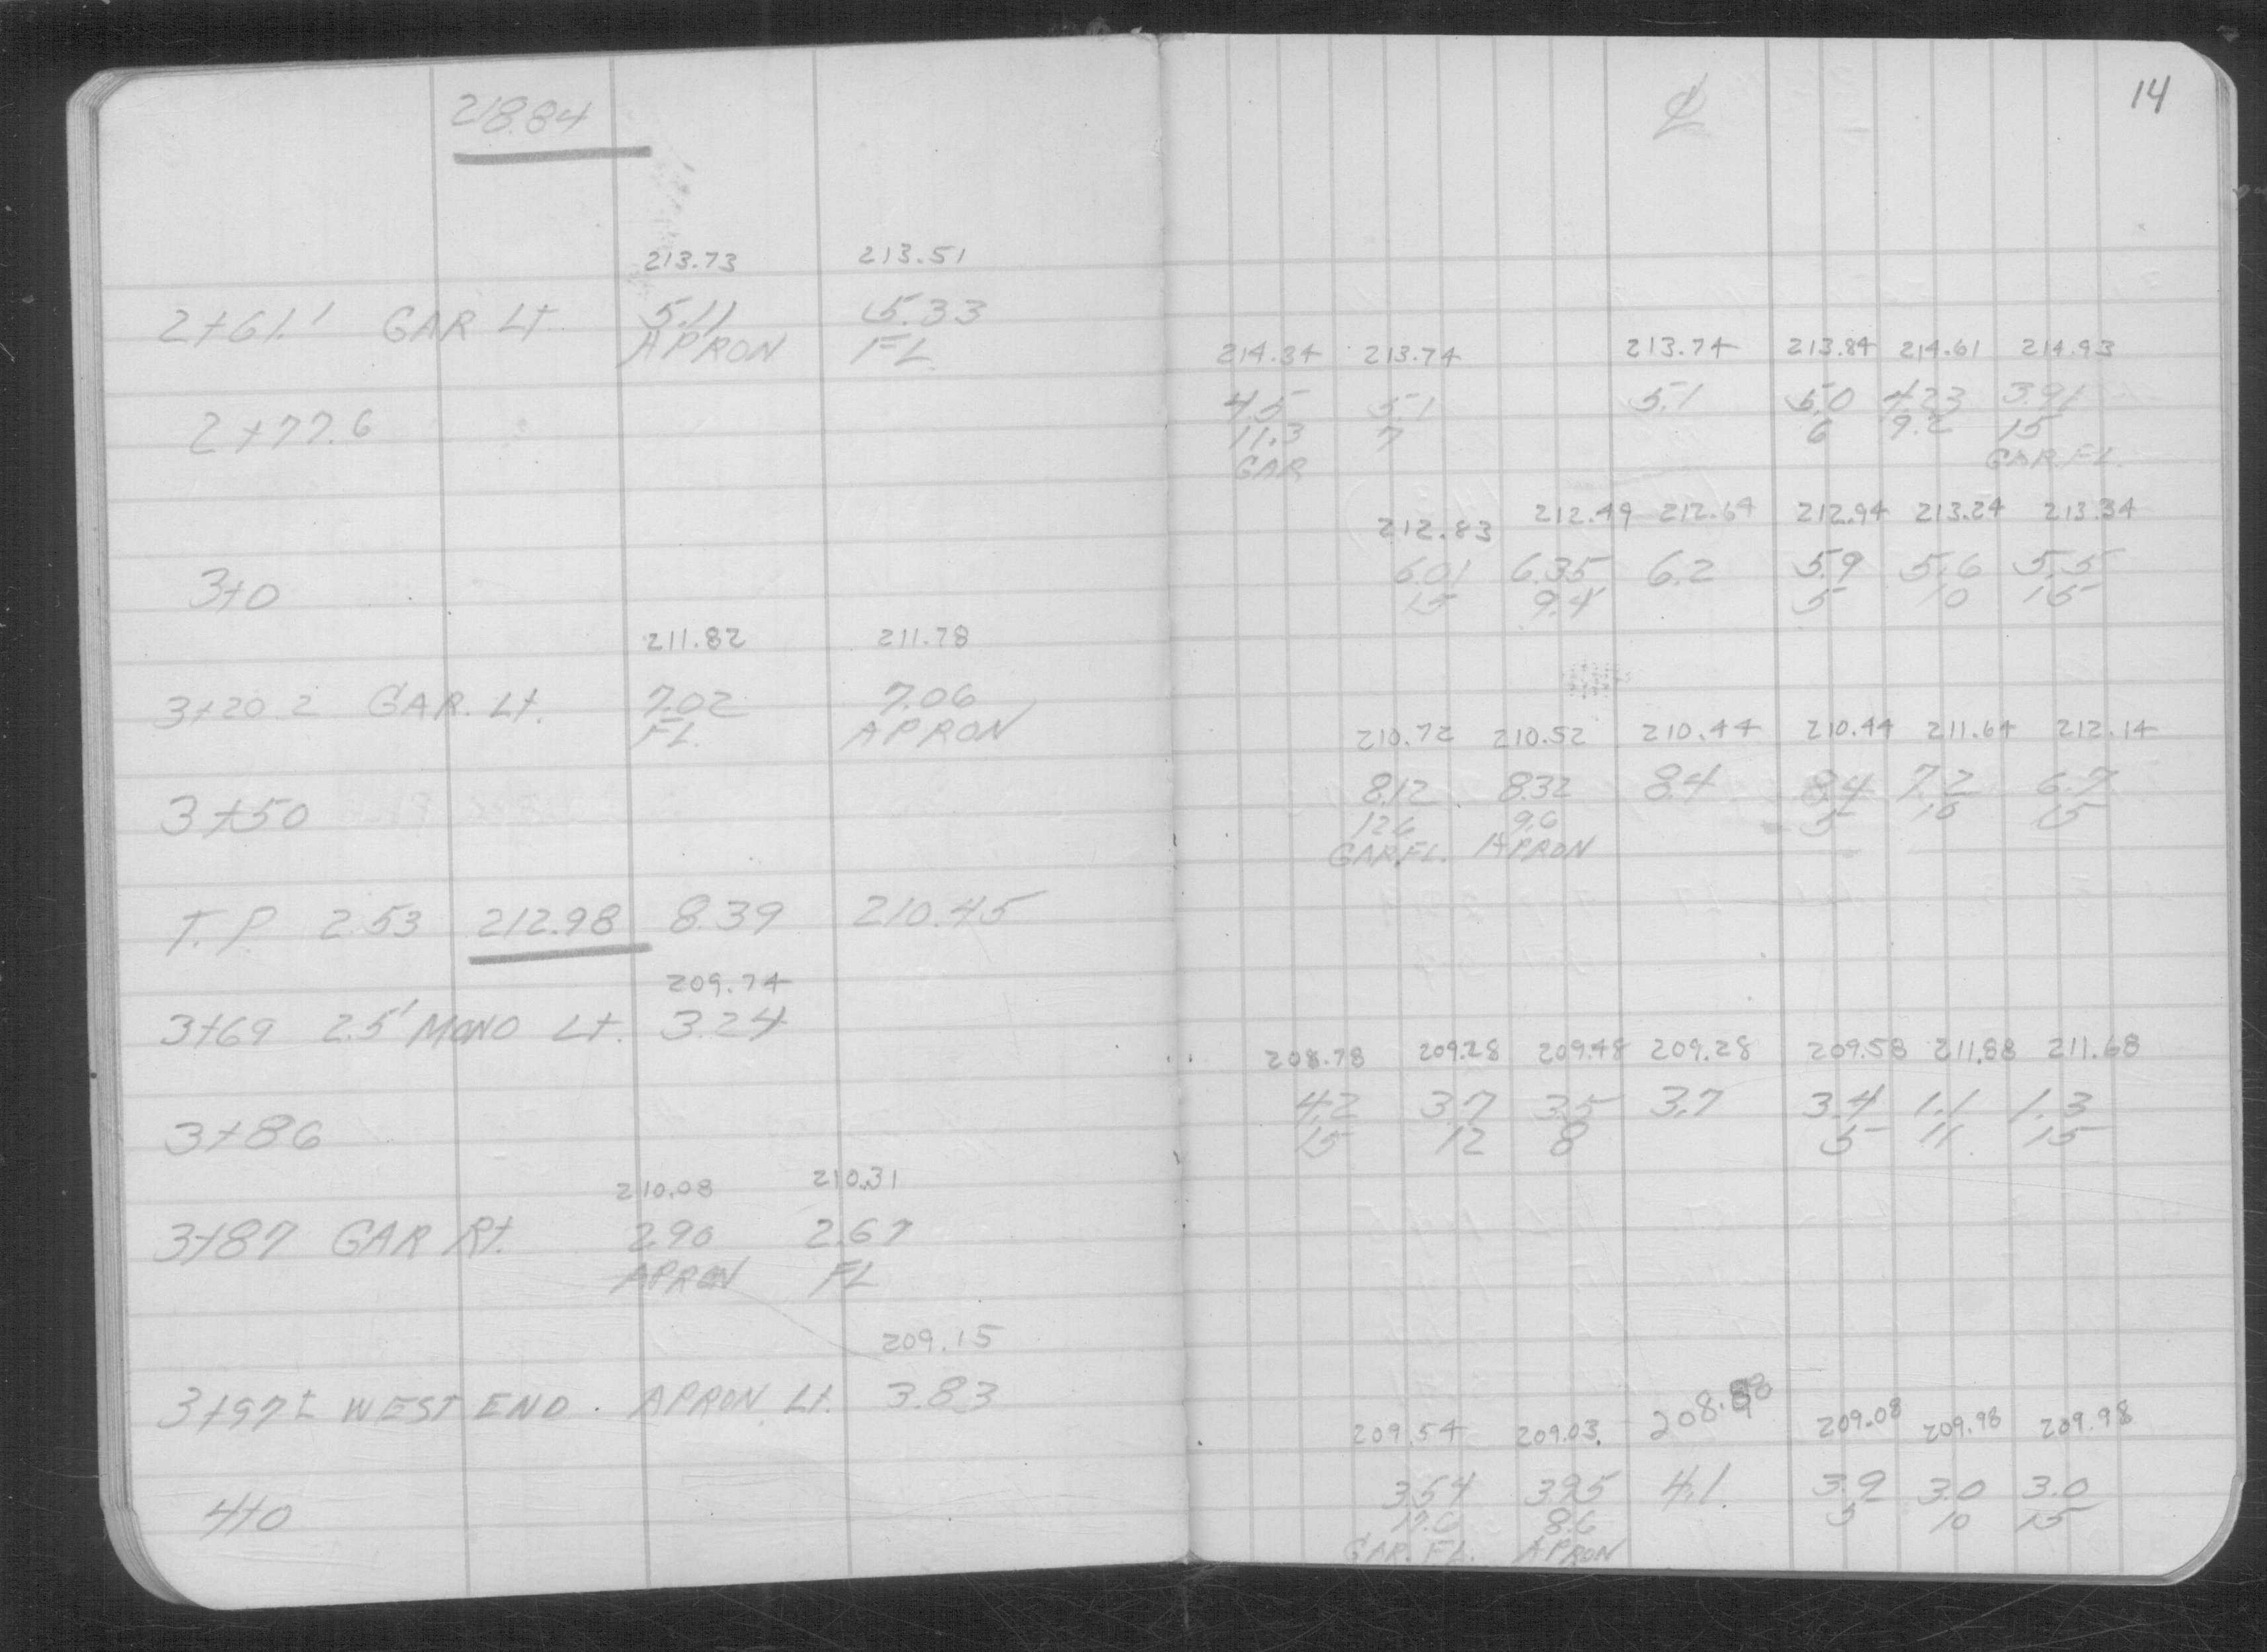 218.84
213.73 213.51
2+61.1 GAR Lt. 5.11 5.33
APRON FL.
2+77.6
3+0
211.82 211.78
3+20.2 GAR. Lt. 7.02 7.06
FL. APRON
3+50
T.P. 2.53 212.98 8.39 210.45
209.74
3+69 2.5' MONO Lt. 3.24
3+86
210.08 210.31
3+87 GAR Rt. 2.90 2.67
APRON FL
209.15
3+97± WEST END. APRON Lt. 3.83
4+0
14
℄
214.34 213.74 213.74 213.84 214.61 214.93
4.5 5.1 5.1 5.0 4.23 3.91
11.3 7 6 9.2 15
GAR GAR.FL.
212.83 212.49 212.64 212.94 213.24 213.34
6.01 6.35 6.2 5.9 5.6 5.5
15 9.4 5 10 15
210.72 210.52 210.44 210.44 211.64 212.14
8.12 8.32 8.4 8.4 7.2 6.7
12.6 9.6 5 10 15
GAR.FL. APRON
208.78 209.28 209.48 209.28 209.58 211.88 211.68
4.2 3.7 3.5 3.7 3.4 1.1 1.3
15 12 8 5 11 15
209.54 209.03 208.88 209.08 209.98 209.98
3.54 3.95 4.1 3.9 3.0 3.0
8.6 5 10 15
GAR. FL. APRON